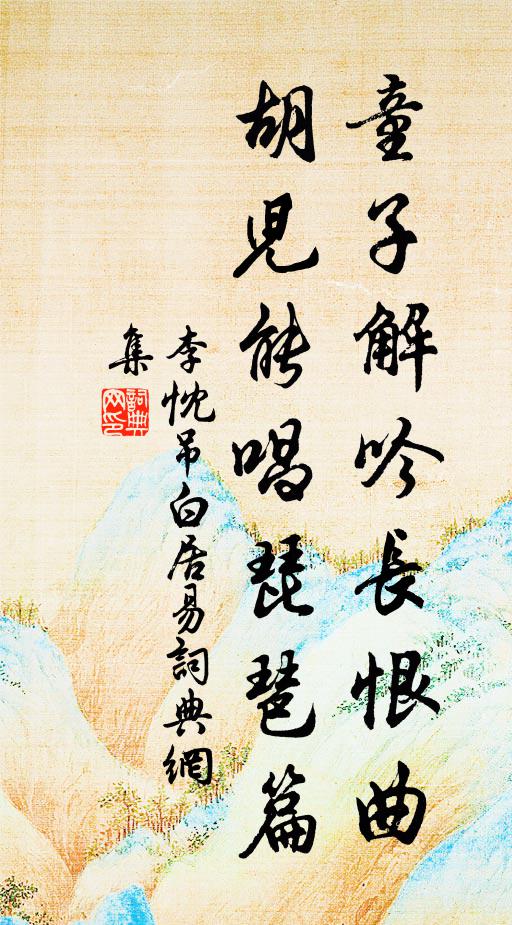 童子解吟長恨曲
胡児能唱琵琶篇
李忱吊白居易詞典網
集
詞典網印